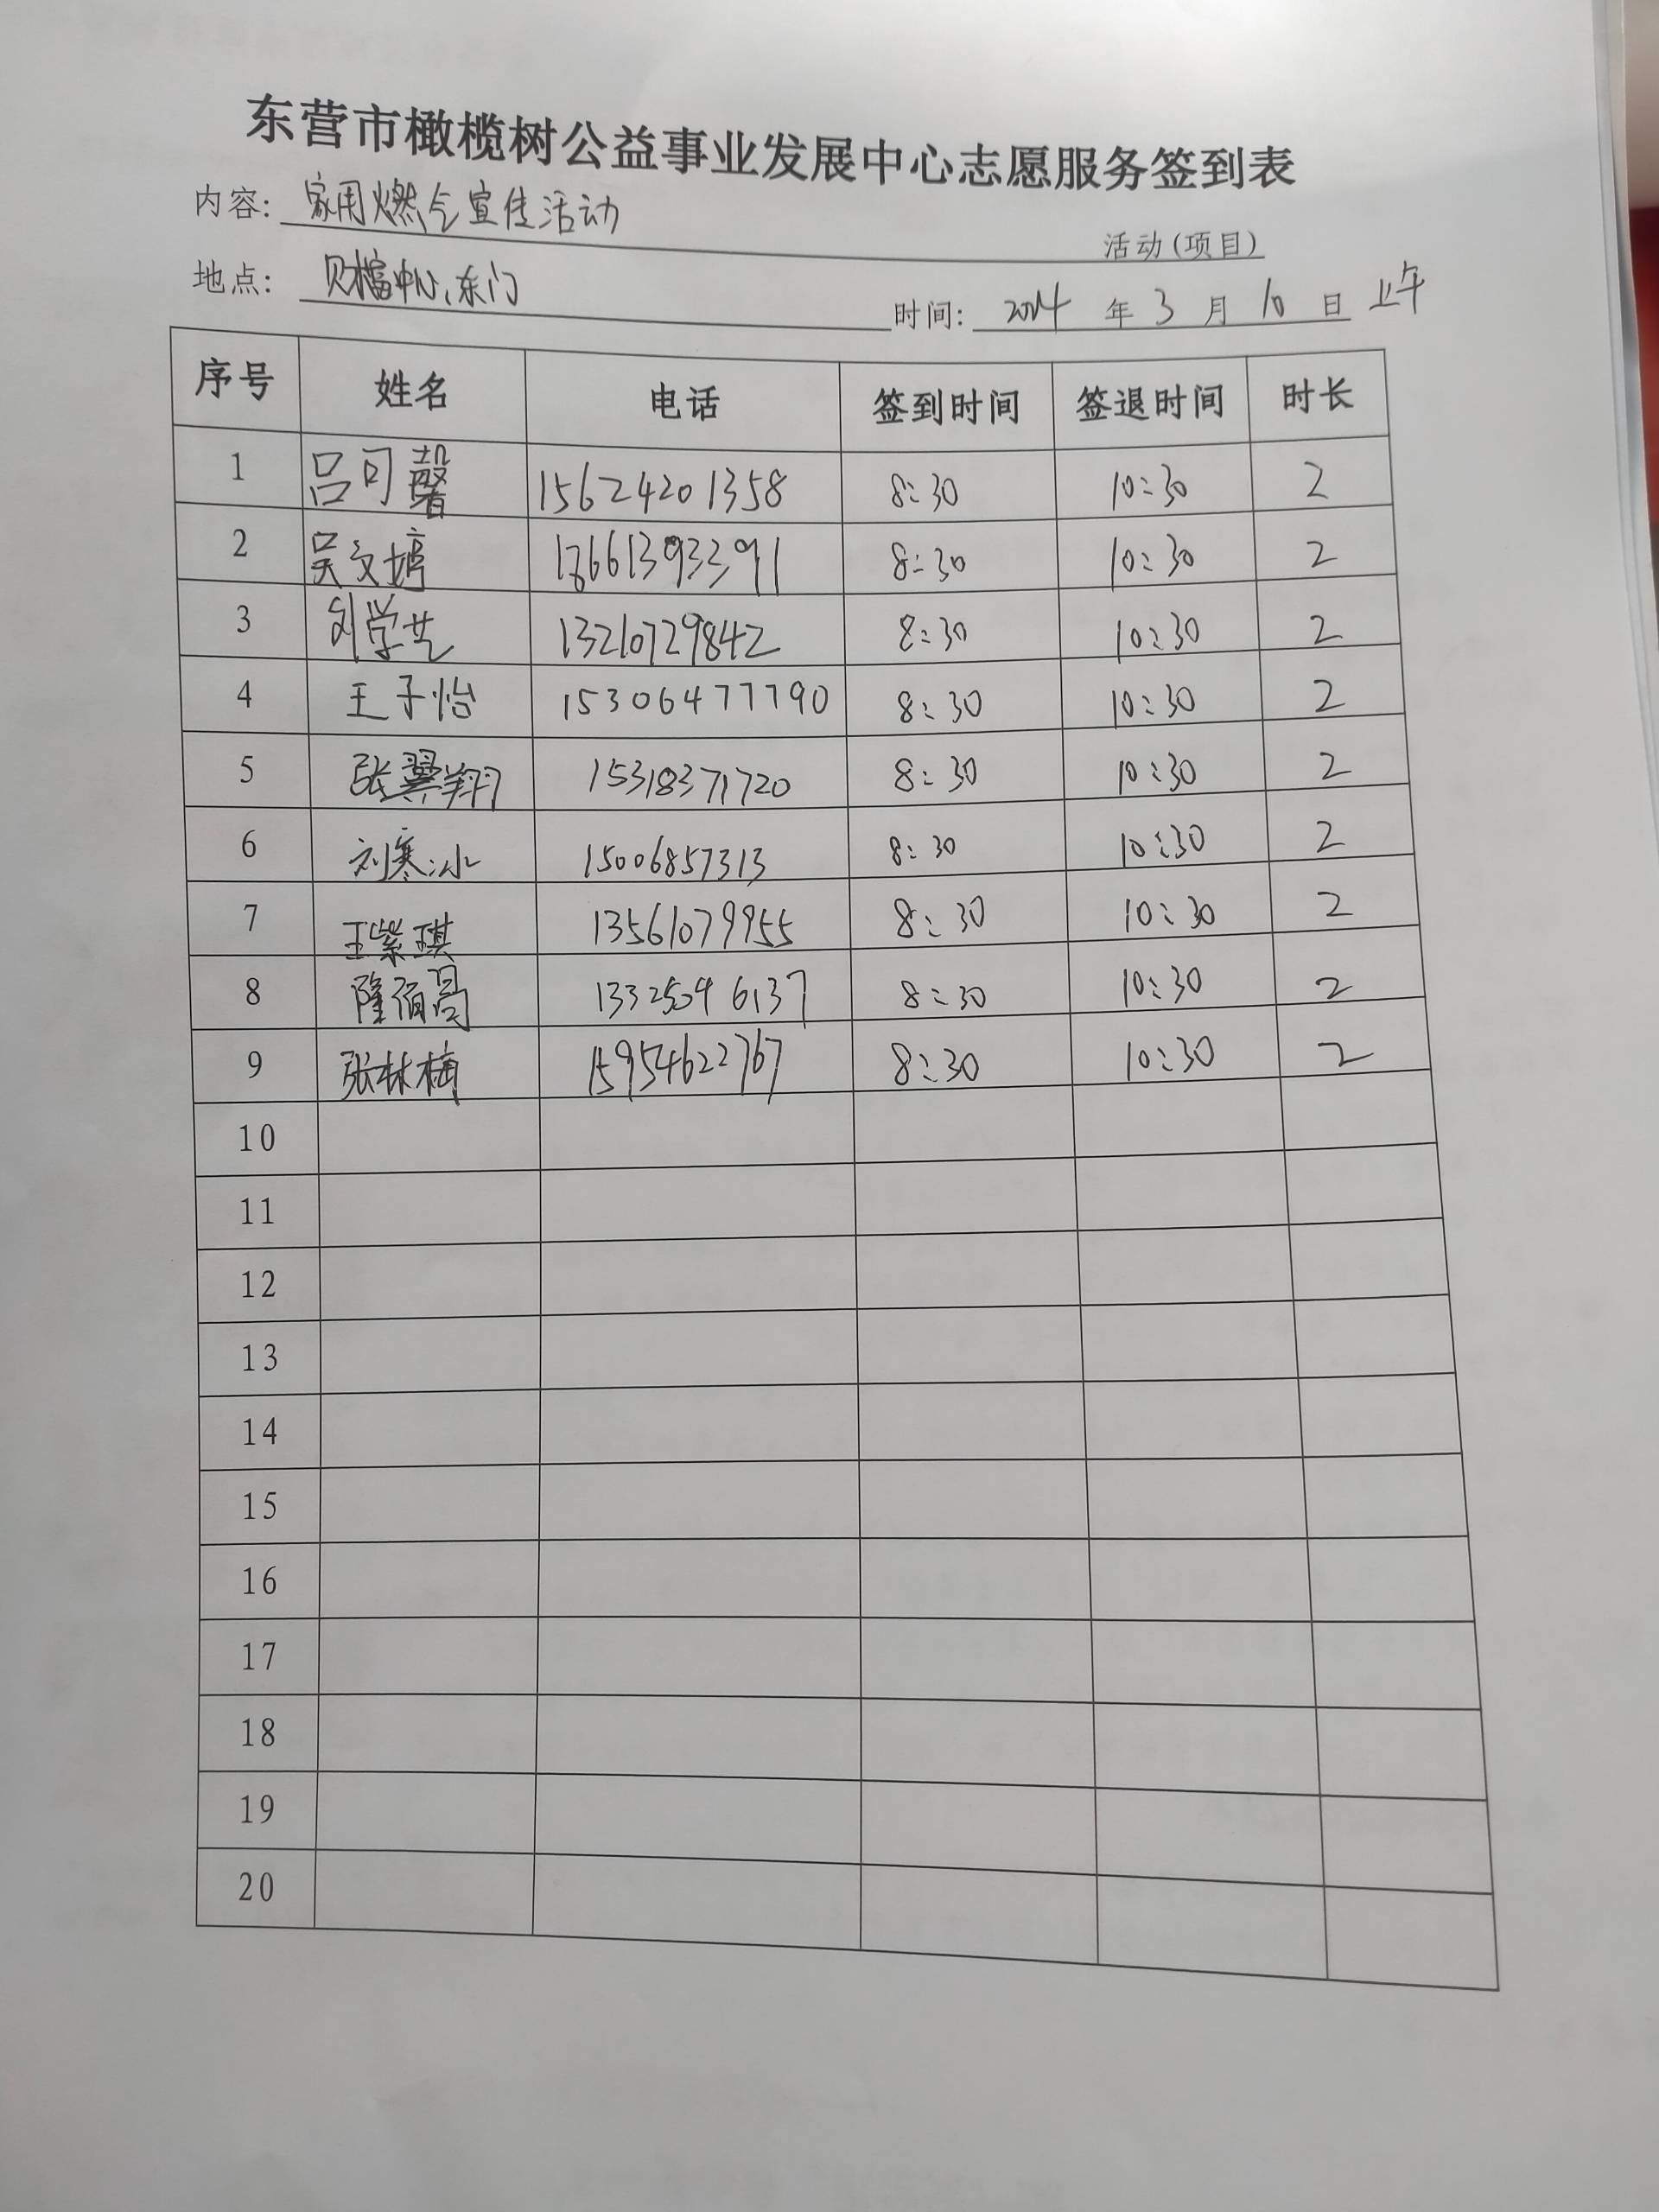 东营市橄榄树公益事业发展中心志愿服务签到表
内容: 家用燃气宣传活动 活动(项目)
地点: 财富中心东门 时间: 2024 年 3 月 10 日 上午
序号 姓名 电话 签到时间 签退时间 时长
1 吕可馨 15624201358 8:30 10:30 2
2 吴文婷 17661393391 8:30 10:30 2
3 刘学艺 13210729842 8:30 10:30 2
4 王子怡 15306477790 8:30 10:30 2
5 张翼翔 15318371720 8:30 10:30 2
6 刘寒冰 15006857313 8:30 10:30 2
7 王紫琪 13561079955 8:30 10:30 2
8 隆佰 13325046137 8:30 10:30 2
9 张林梅 15954622767 8:30 10:30 2
10
11
12
13
14
15
16
17
18
19
20